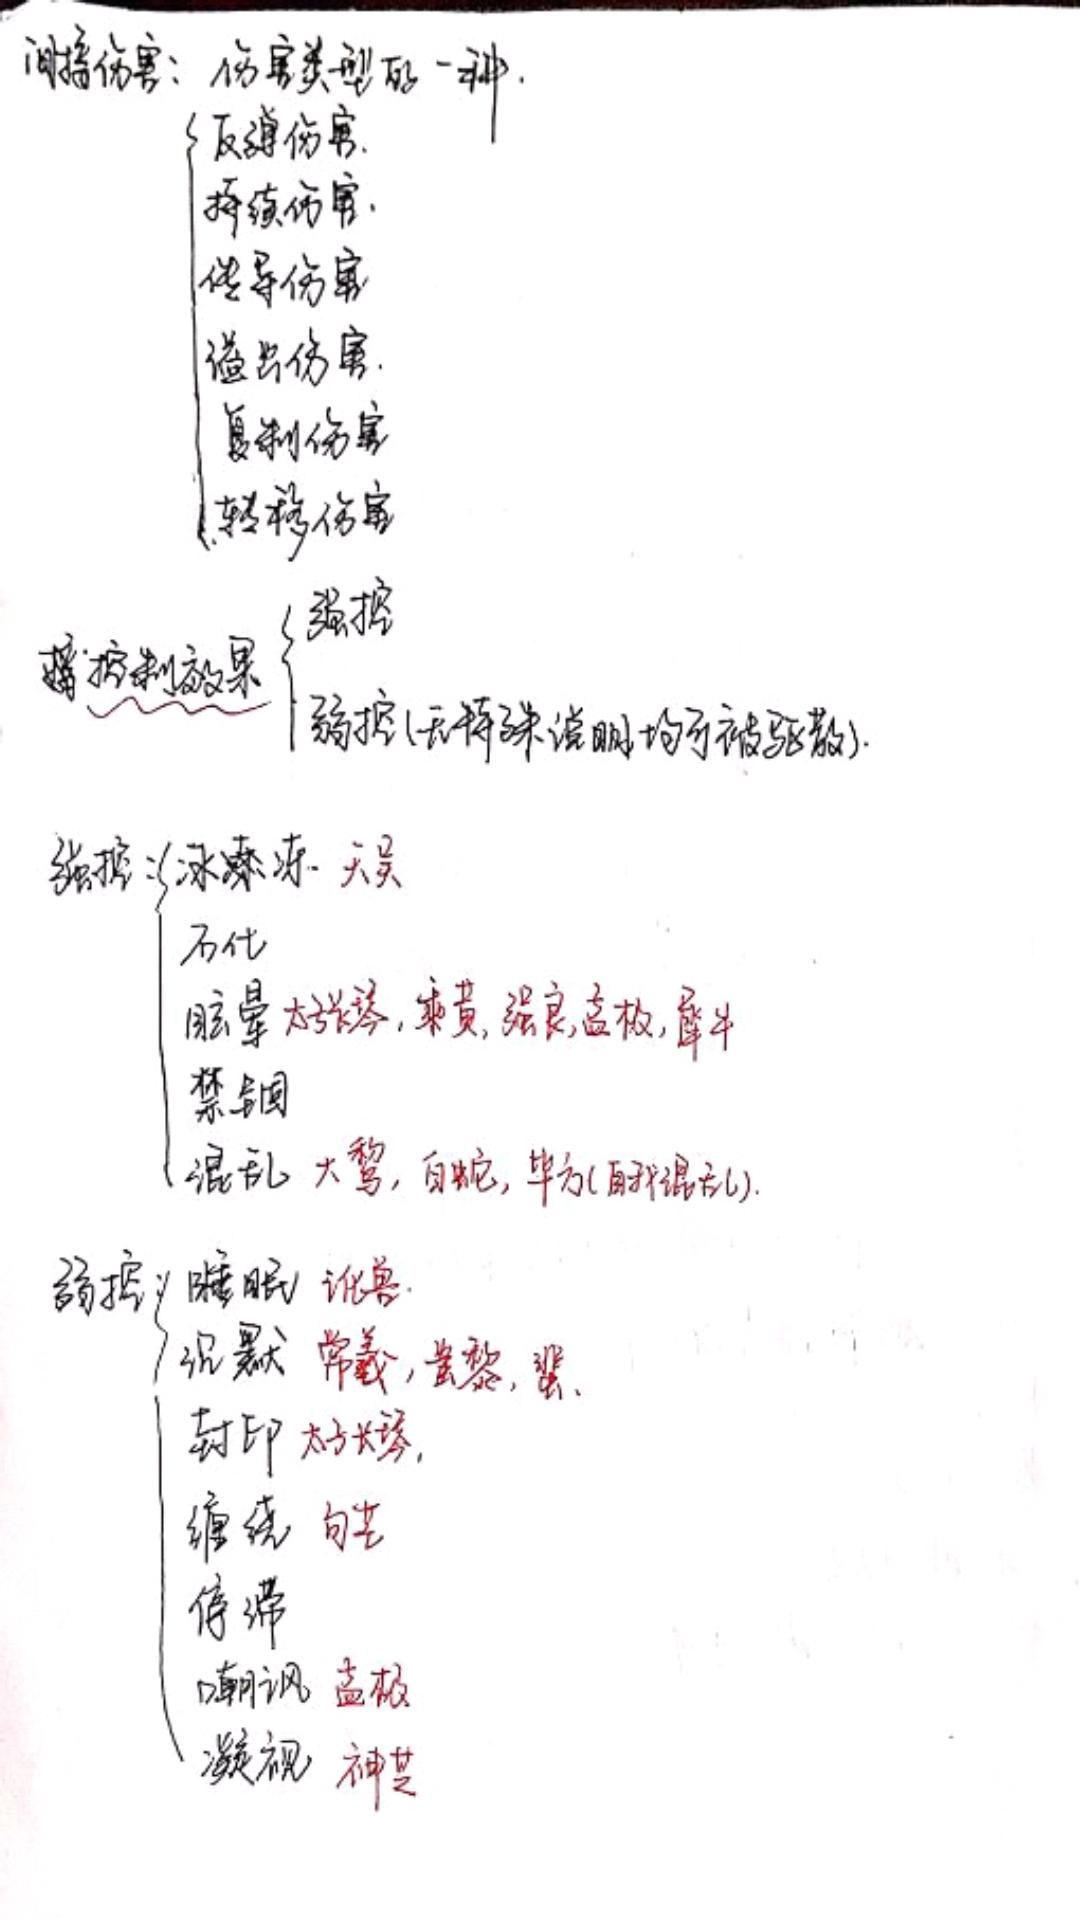 间接伤害：伤害类型的一种.
反弹伤害.
持续伤害.
传导伤害
溢出伤害.
复制伤害
转移伤害
控制效果
强控
弱控(无特殊说明均可被驱散).
强控：冰冻. 天吴
石化
眩晕 太子长琴, 乘黄, 强良, 孟极, 犀牛
禁锢
混乱 大鹙, 白蛇, 毕方(自我混乱).
弱控： 睡眠 讹兽.
沉默 常羲, 蚩黎, 蜚.
封印 太子长琴,
缠绕 句芒
停滞
嘲讽 孟极
凝视 神芝